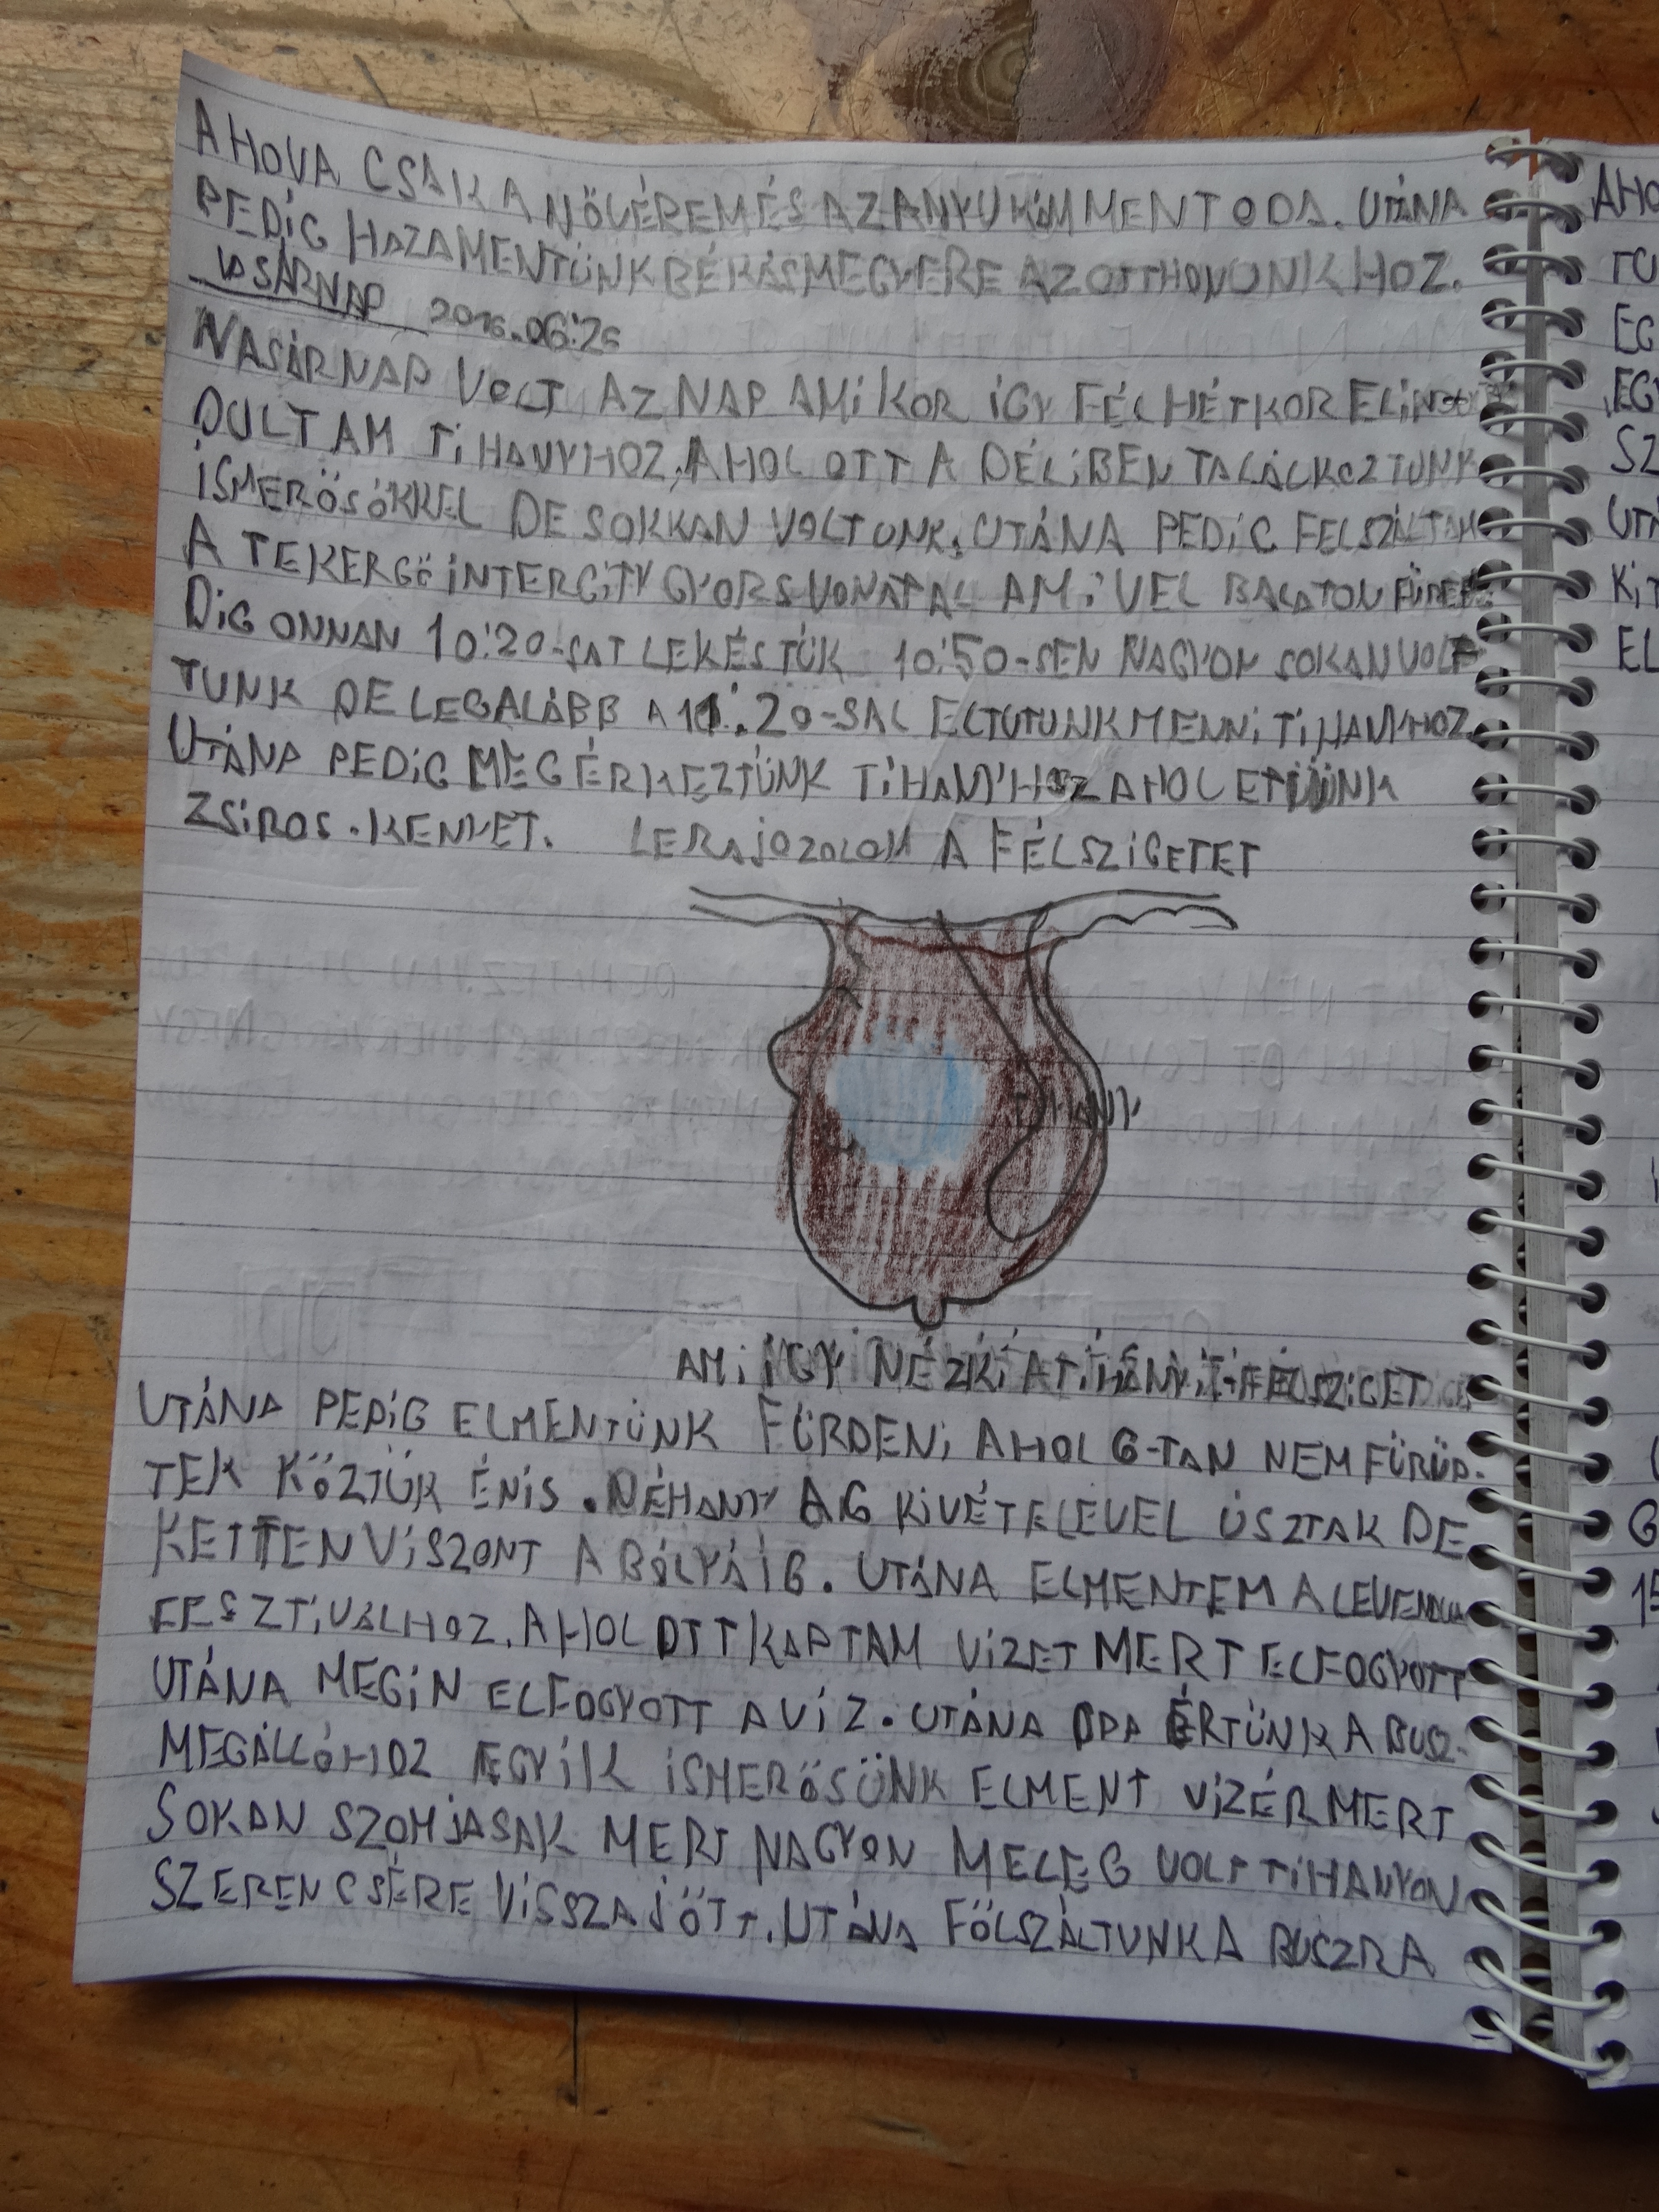 AHOVA CSAK A NŐVÉREM ÉS AZ ANYUKÁM MENT ODA. UTÁNA
PEDIG HAZAMENTÜNK BÉKÁSMEGYERE AZ OTTHONUNKHOZ.
VASÁRNAP 2016.06.26
VASÁRNAP VOLT AZ NAP AMIKOR ÍGY FÉLHÉTKOR ELIN
DULTAM TIHANYHOZ, AHOL OTT A DÉLIBEN TALÁLKOZTUNK
ISMERŐSÖKKEL DE SOKKAN VOLTUNK. UTÁNA PEDIG FELSZÁLTAM
A TEKERGŐ INTERCITY GYORSVONATAL AMIVEL BALATONFÜRED
DIG ONNAN 10:20-SAT LEKÉSTÜK 10:50-SEN NAGYON SOKAN VOL
TUNK DE LEGALÁBB A 11:20-SAL ELTUTUNK MENNI TIHANYHOZ.
UTÁNA PEDIG MEGÉRKEZTÜNK TIHANYHSZ AHOL ETTÜNK
ZSIROS.KENYET. LERAJOZOLOM A FÉLSZIGETET
TIHANY
AMI ÍGY NÉZKI A TIHANYI-FÉLSZIGET
UTÁNA PEDIG ELMENTÜNK FÜRDENI AHOL 6-TAN NEM FÜRÜD-
TEK KÖZTÜK ÉNIS. NÉHANY ÁG KIVÉTELEVEL ÚSZTAK DE
KETTEN VISZONT A BÓLYÁIG. UTÁNA ELMENTEM A LEVENDULA
FESZTIVÁLHOZ. AHOL OTT KAPTAM VIZET MERT ELFOGYOTT
UTÁNA MEGIN ELFOGYOTT A VÍZ. UTÁNA ODA ÉRTÜNK A BUSZ-
MEGÁLLÓHOZ EGYIK ISMERŐSÜNK ELMENT VIZÉR MERT
SOKAN SZOMJASAK MERT NAGYON MELEG VOLT TIHANYON
SZERENCSÉRE VISSZAJÖTT. UTÁNA FÖLSZÁLTUNK A BUSZRA
AHO
EG
EGY
SZ
UTÁ
KIT
EL